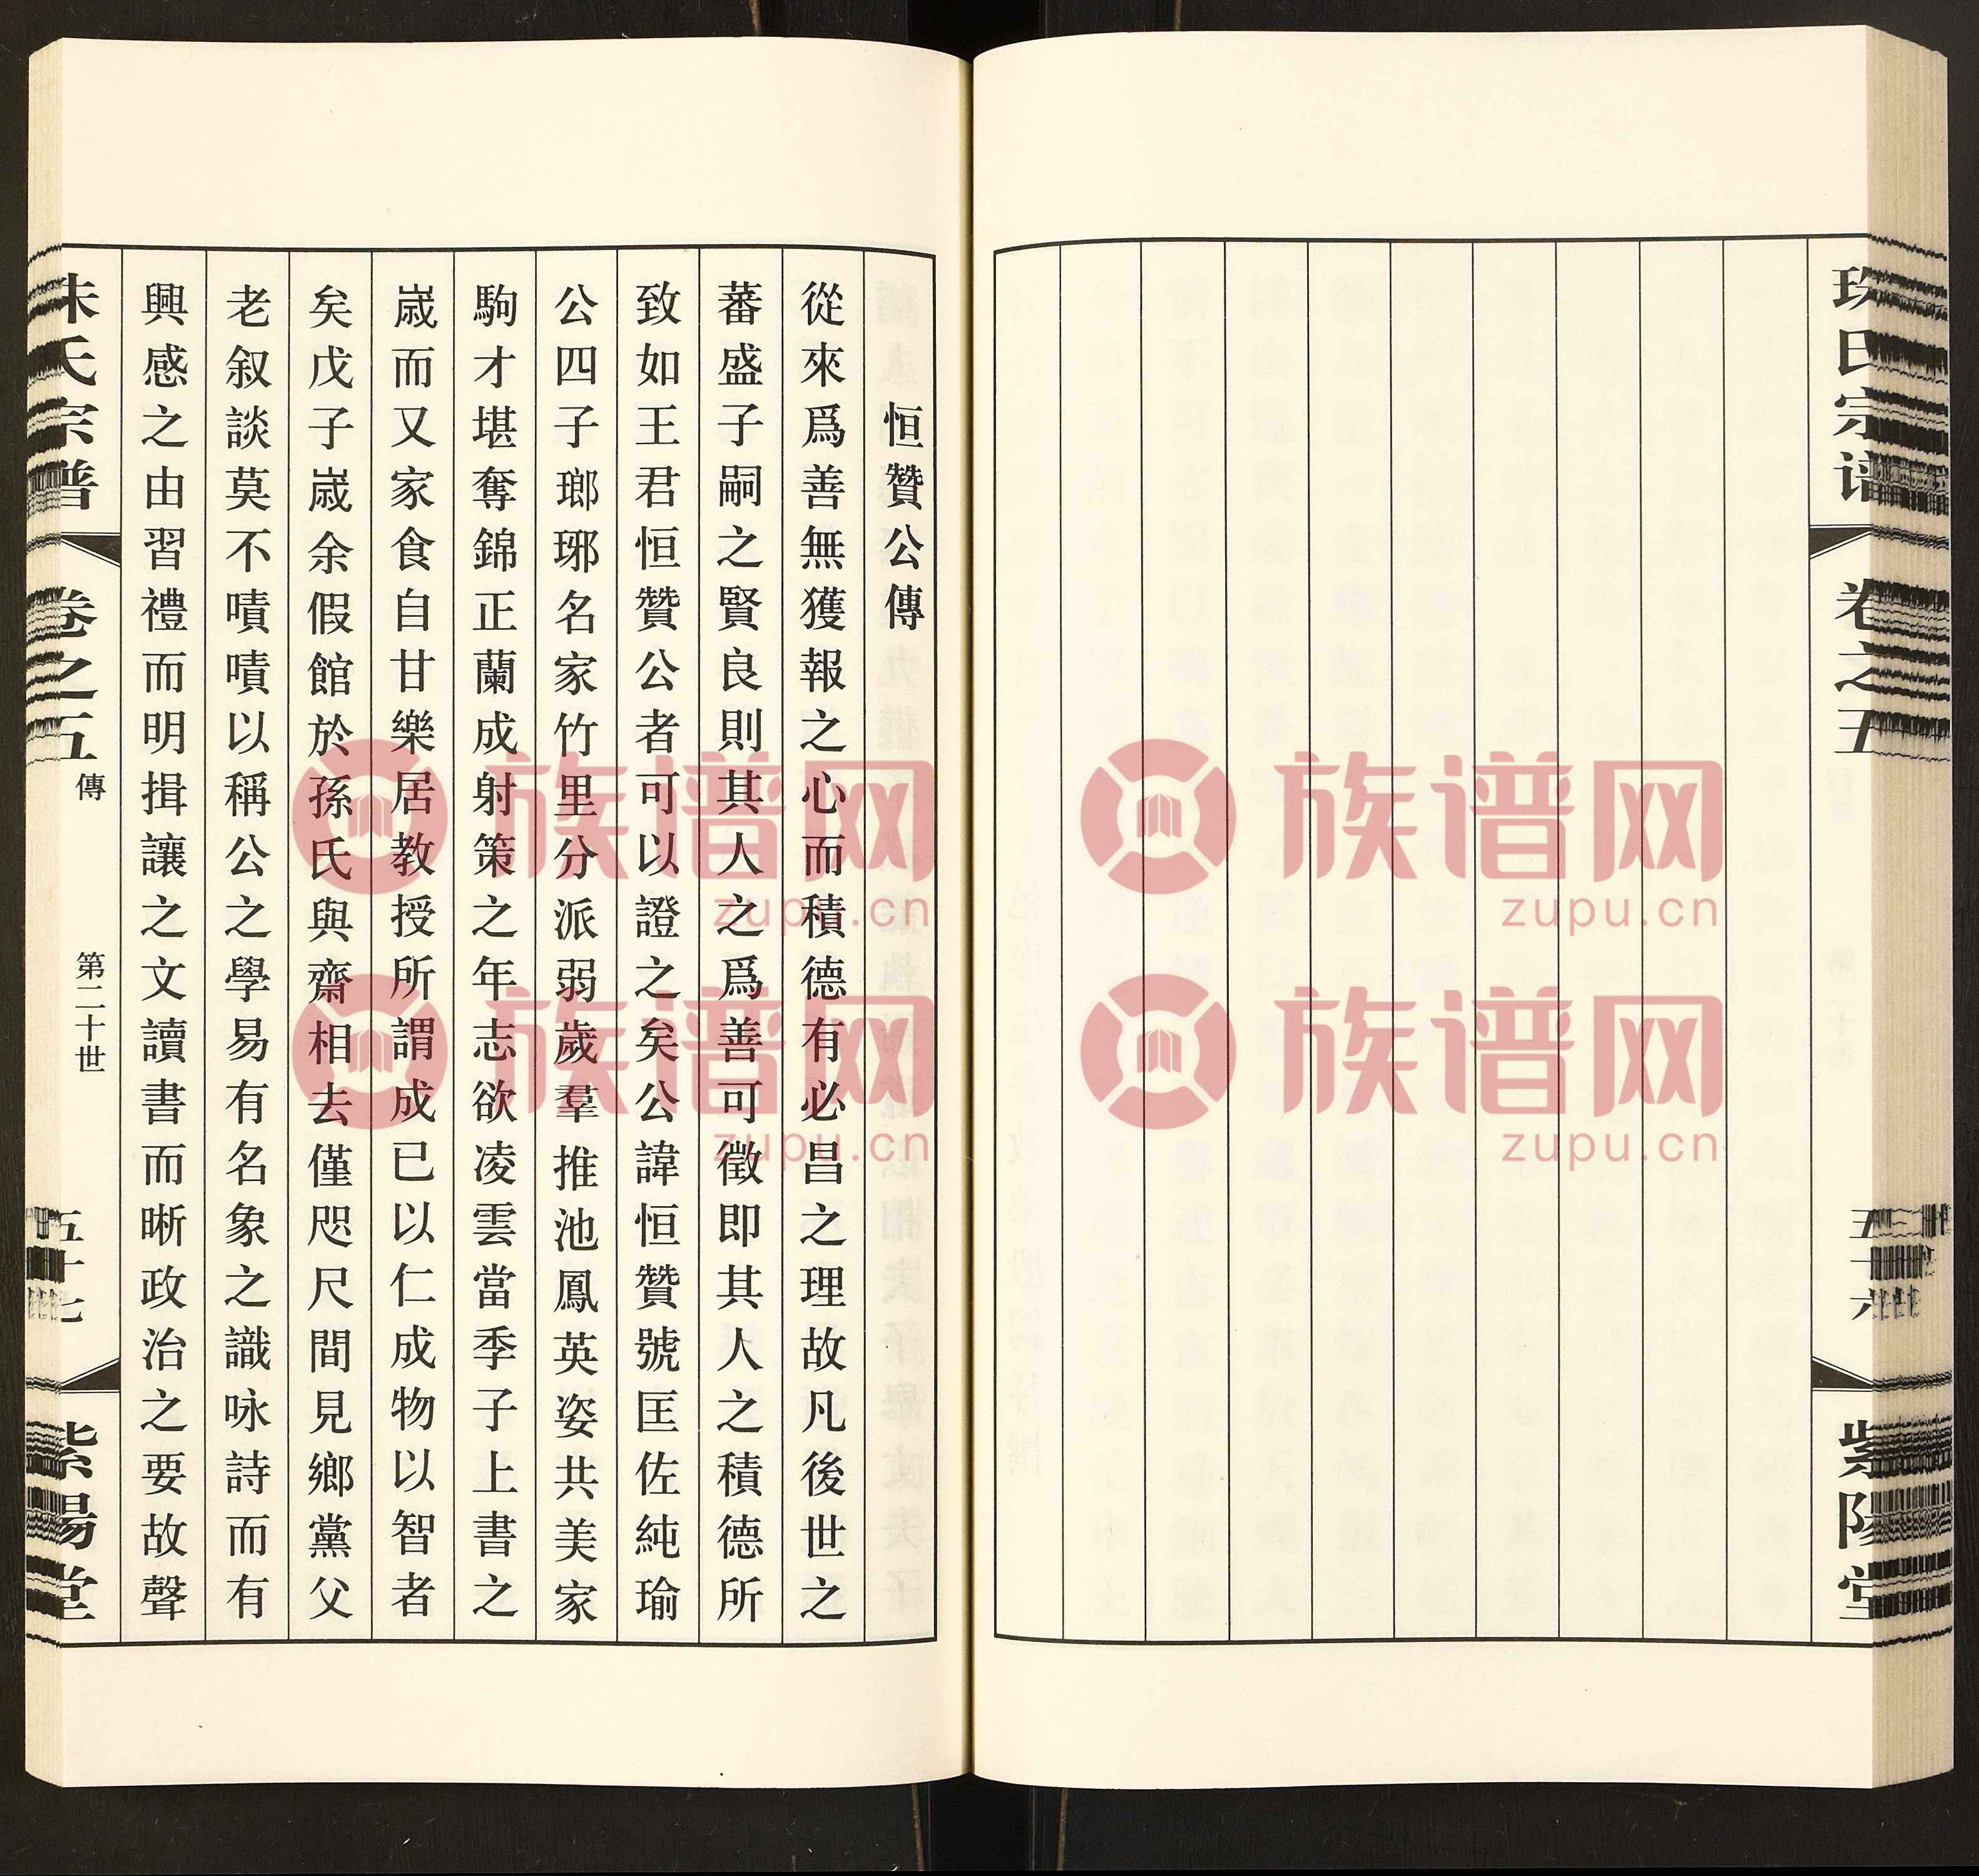 卷之五
五十六
紫陽堂
恒贊公傳
從來爲善無獲報之心而積德有必昌之理故凡後世之
蕃盛子嗣之賢良則其人之爲善可徵即其人之積德所
致如王君恒贊公者可以證之矣公諱恒贊號匡佐純瑜
公四子瑯琊名家竹里分派弱歲羣推池鳳英姿共美家
駒才堪奪錦正蘭成射策之年志欲凌雲當季子上書之
歲而又家食自甘樂居教授所謂成已以仁成物以智者
矣戊子歲余假館於孫氏與齋相去僅咫尺間見鄉黨父
老叙談莫不嘖嘖以稱公之學易有名象之識咏詩而有
興感之由習禮而明揖讓之文讀書而晰政治之要故聲
氏宗譜
卷之五
傳
第二十世
五十七
紫陽堂
族谱网
zupu.cn
族谱网
zupu.cn
族谱网
zupu.cn
族谱网
zupu.cn